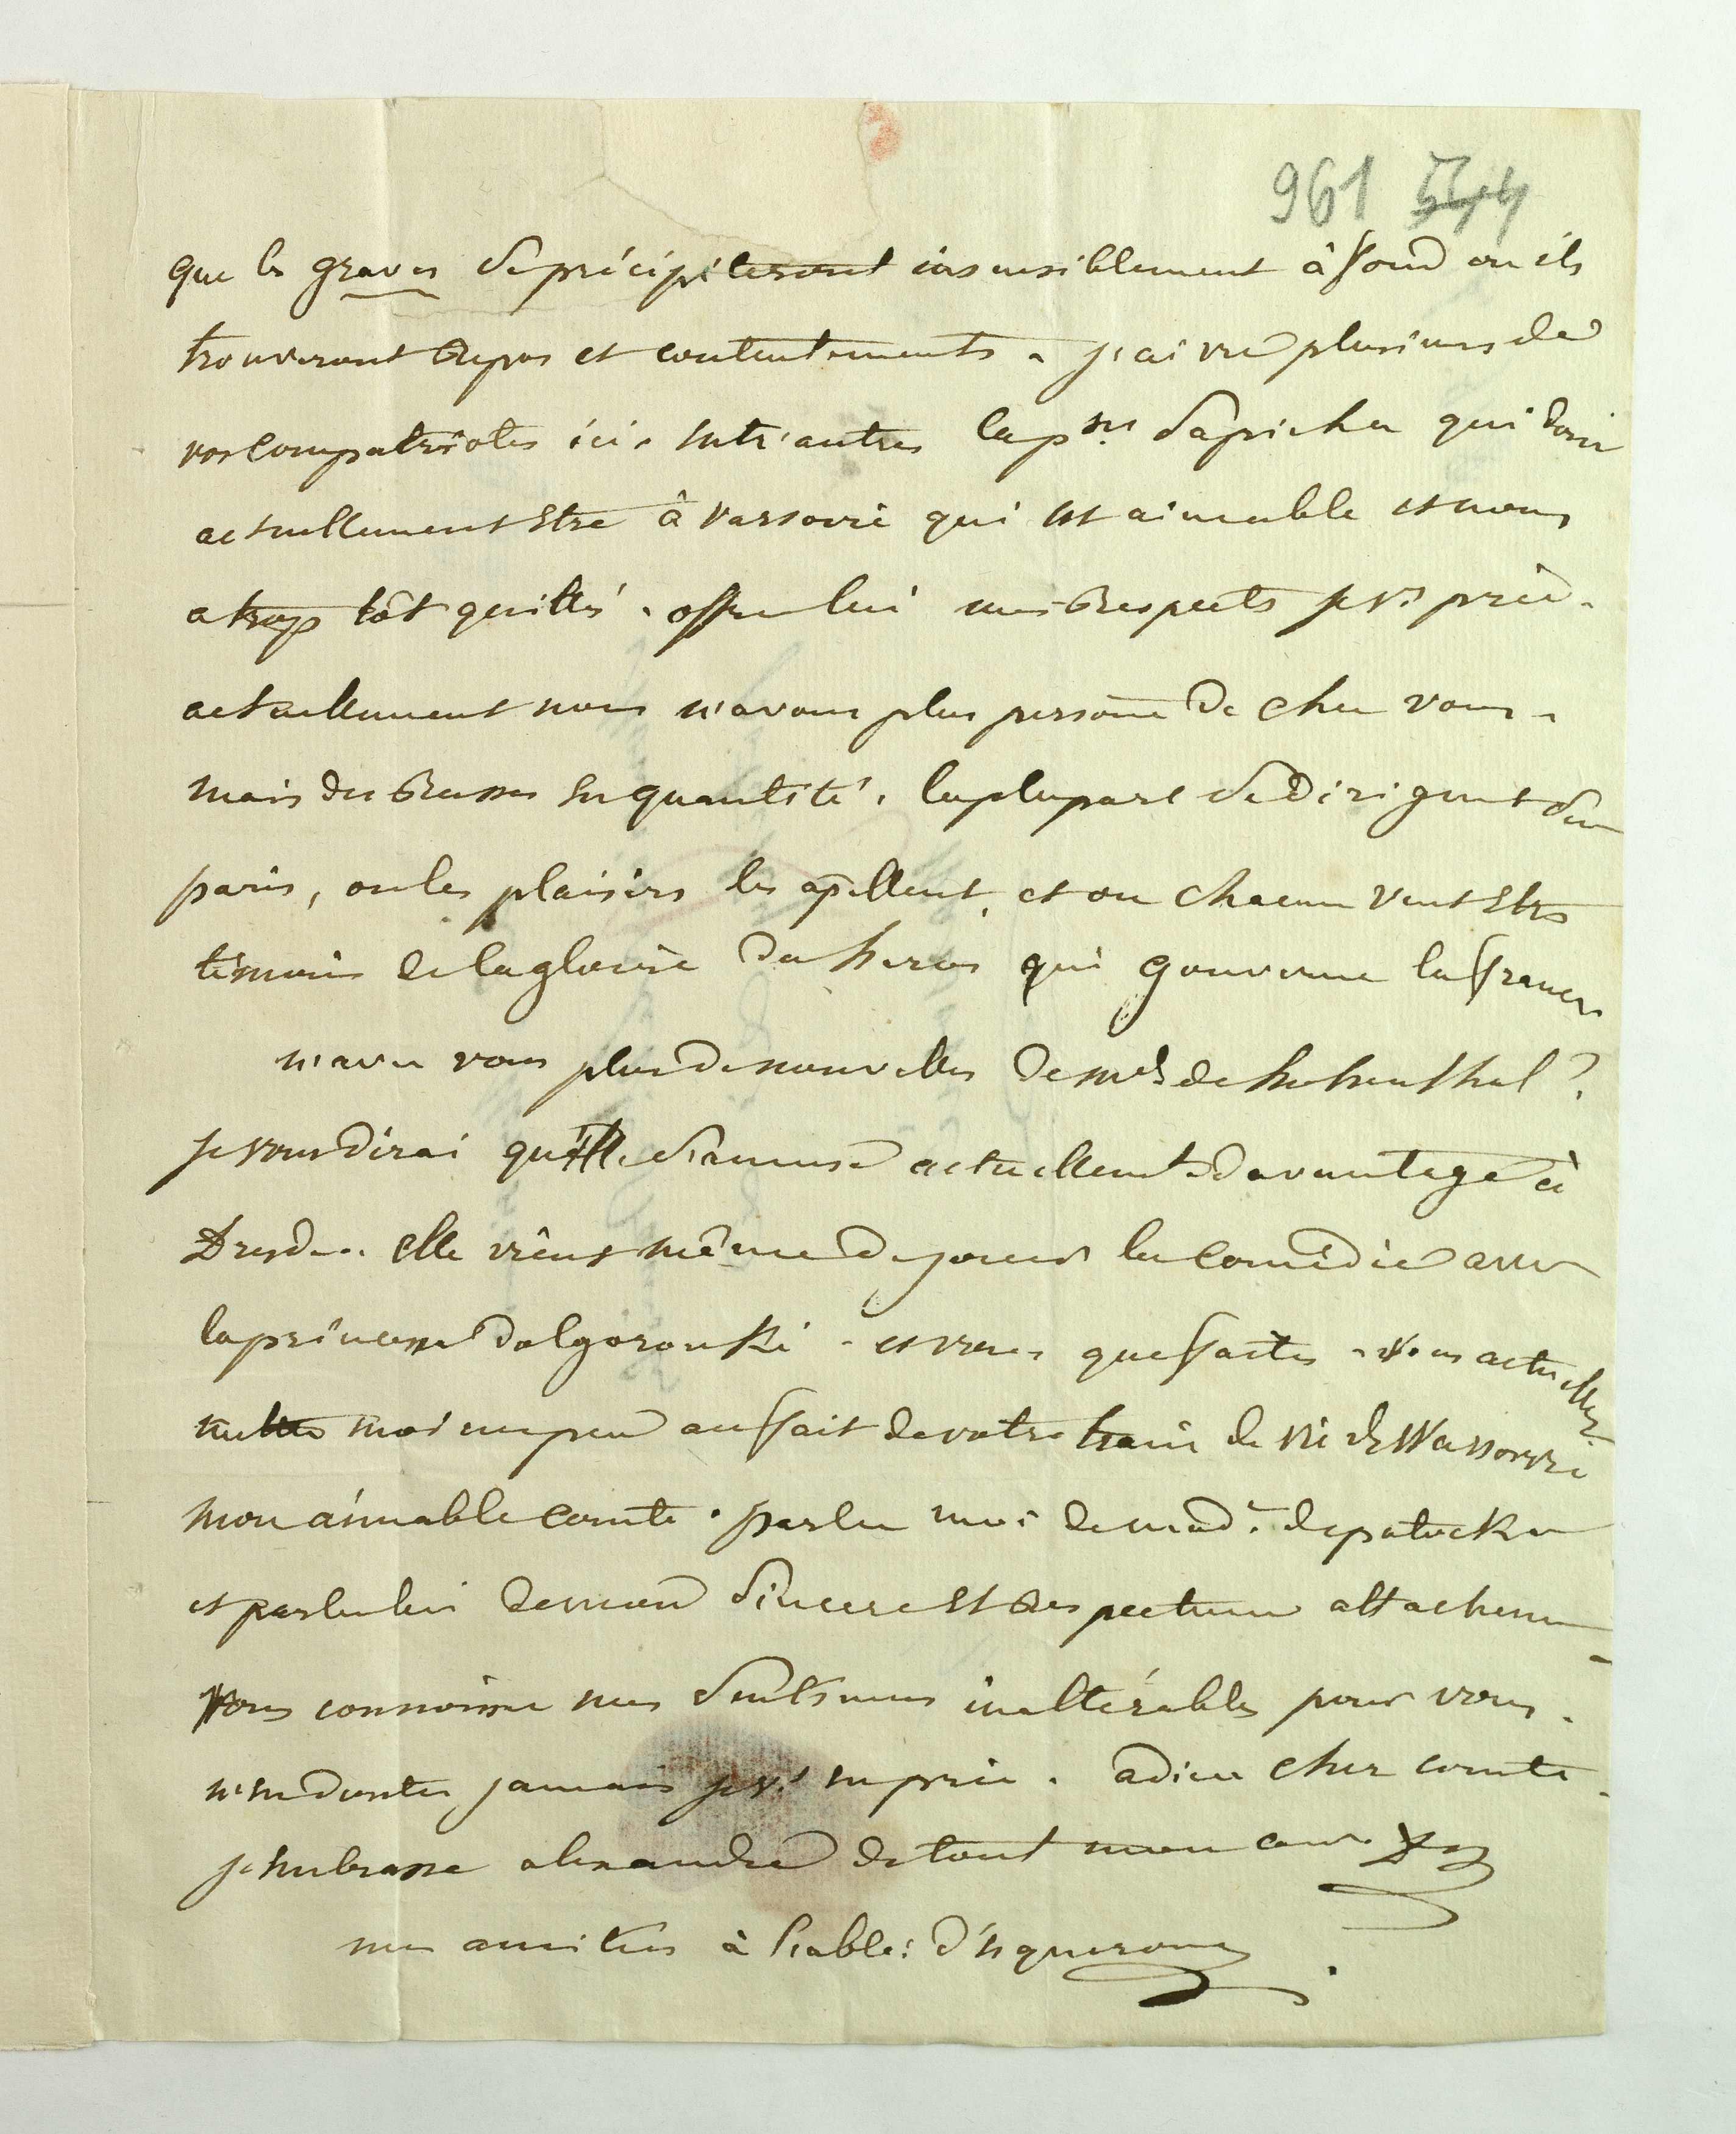 961 544
que les graves se précipiteront insensiblement à fond ou ils
trouveront repos et contentements. j'ai vu plusieurs de
vos compatriotes ici. entr'autres la pss: Sapieha qui doit
actuellement etre à varsovie qui est aimable et nous
a trop tôt quitté. offre lui mes respects je vs prie.
actuellement nous n'avons plus persone de chez vous.
mais des Russes en quantité. la plupart se dirigent sur
paris, ou les plaisirs les apellent, et ou chacun veut etre
témoin de la gloire du heros qui gouverne la france
n'avez vous plus de nouvelles de md de hohenthal?
je vous dirai qu'elle s'amuse actuellemt davantage à
Dresde. elle vient même de jouer la comédie avec
la princesse dolgorouki. et vous que faites-vous actuellemt.
mettez moi un peu au fait de votre train de vie de Warsovie
mon aimable comte. parlez moi de mad: de potocka
et parlez lui de mon sincere et respectueux attachem
vous connoissez mes sentimens inaltérables pour vous.
n'en doutez jamais je vs en prie. adieu cher comte.
j'embrasse alexandre de tout mon cœur
mes amitiés à l'abbé: